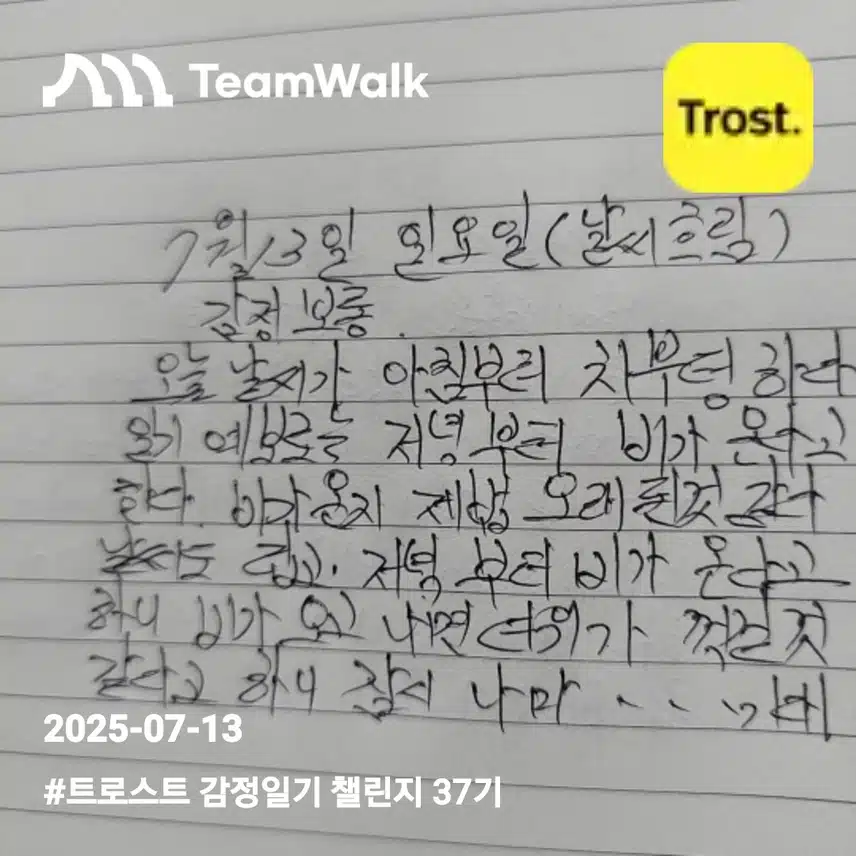 TeamWalk
Trost.
7월13일 일요일(날씨흐림)
감정보통.
오늘 날씨가 아침부터 하다
일기 예보로는 저녁부터 비가 온다고
한다. 비가 온지 제법 오래 된것 같다
날씨도 덥고. 저녁 부터 비가 온다고
하니 비가 오고 나면 더위가 꺽일 것
같다고 하니 잠시 나마 ...
2025-07-13
#트로스트 감정일기 챌린지 37기